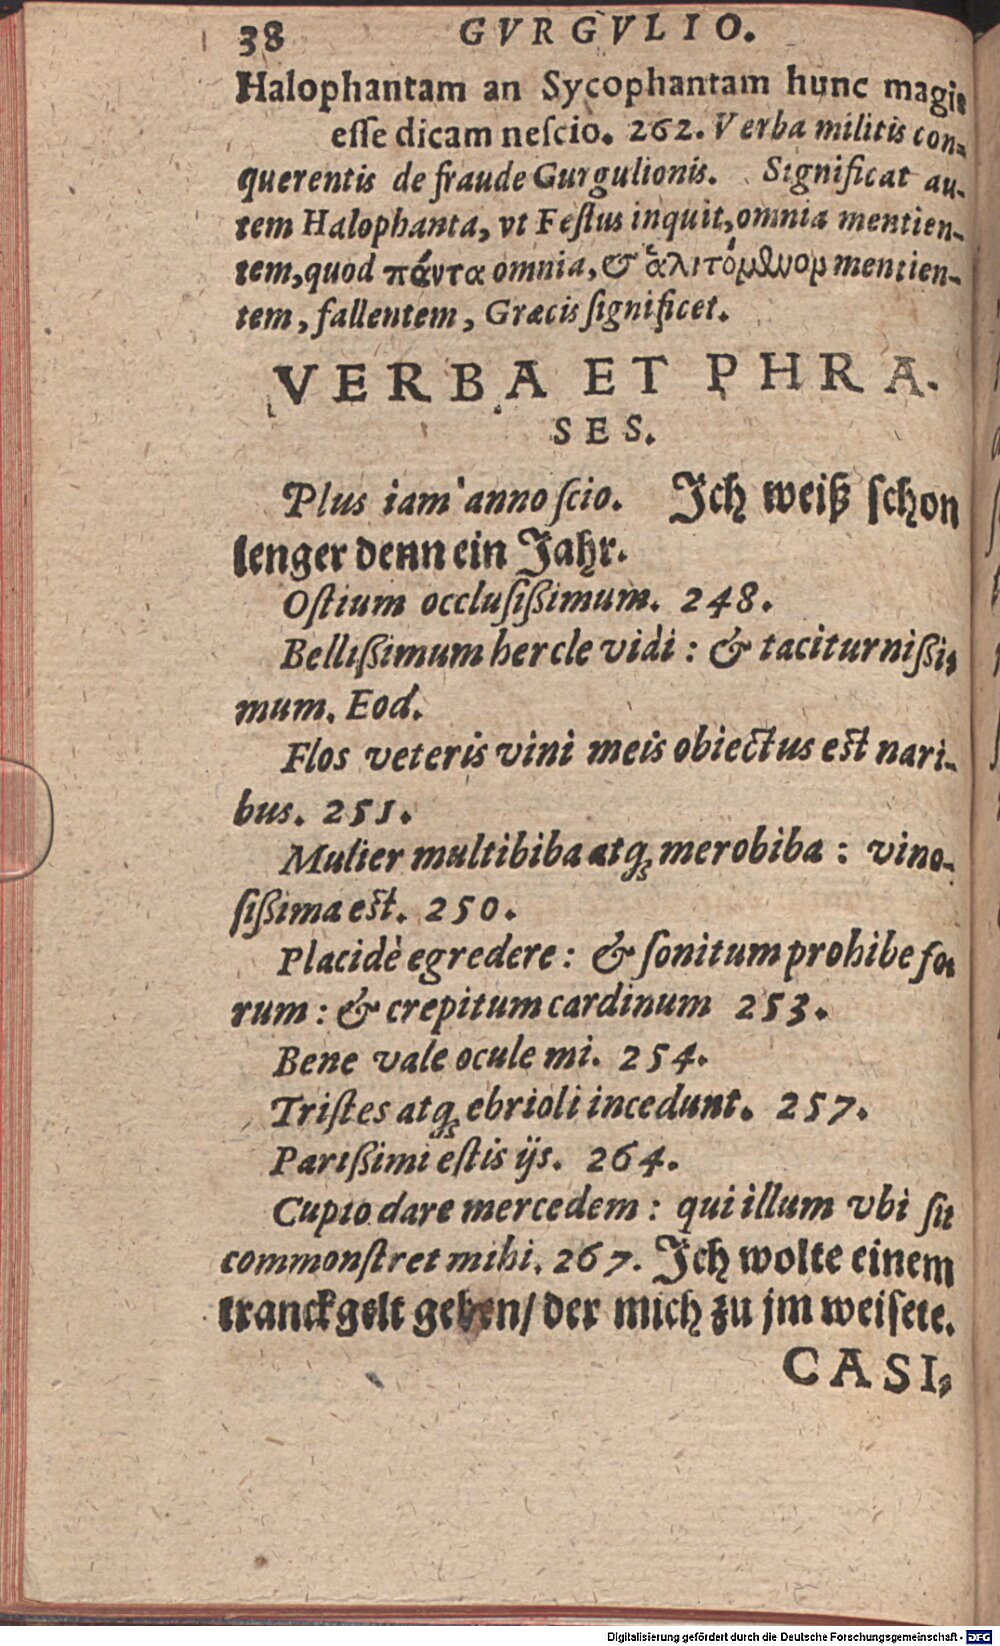 38 GVRGVLIO.
Halophantam an Sycophantam hunc magis
esse dicam nescio. 262. Verba militis con-
querentis de fraude Gurgulionis. Significat au-
tem Halophanta, vt Festus inquit, omnia mentien-
tem, quod πάντα omnia, & ἁλιτόμϑυομ mentien-
tem, fallentem, Græcis significet.
VERBA ET PHRA-
SES.
Plus iam anno scio. Ich weiß schon
lenger denn ein Jahr.
Ostium occlusißimum. 248.
Bellißimum hercle vidi: & taciturnißi-
mum. Eod.
Flos veteris vini meis obiectus est nari-
bus. 251.
Mulier multibiba atq; merobiba: vino-
sißima est. 250.
Placidè egredere: & sonitum prohibe fo-
rum: & crepitum cardinum 253.
Bene vale ocule mi. 254.
Tristes atq; ebrioli incedunt. 257.
Parißimi estis ijs. 264.
Cupio dare mercedem: qui illum vbi sit
commonstret mihi. 267. Ich wolte einem
tranckgelt geben/ der mich zu jm weisete.
CASI-
Digitalisierung gefördert durch die Deutsche Forschungsgemeinschaft - DFG